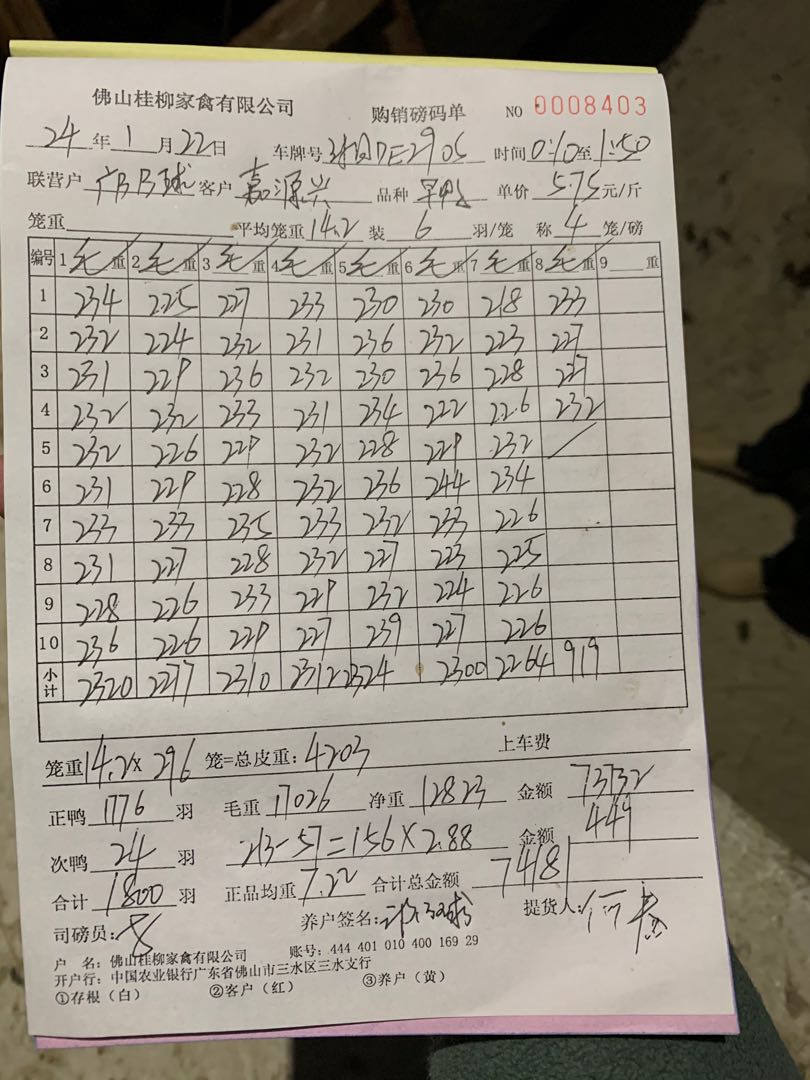 佛山桂柳家禽有限公司 购销磅码单 NO 0008403
24 年 1 月 22 日 车牌号 DE2905 时间 0:10 至 1:50
联营户 客户 嘉源兴 品种 单价 5.75 元/斤
笼重 平均笼重 14.2 装 6 羽/笼 称 4 笼/磅
编号 1 毛 重 2 毛 重 3 毛 重 4 毛 重 5 毛 重 6 毛 重 7 毛 重 8 毛 重 9 重
1 234 225 227 233 230 230 218 233
2 232 224 232 231 236 232 223 227
3 231 229 236 232 230 236 228 227
4 232 232 233 231 234 222 226 232
5 232 226 229 232 228 229 232
6 231 229 228 232 236 244 234
7 233 233 235 233 232 233 226
8 231 227 228 232 227 223 225
9 228 226 233 229 232 224 226
10 236 226 229 227 239 227 226
小计 2320 2277 2310 2312 2324 2300 2264 919
笼重 14.2 × 296 笼=总皮重: 4203 上车费
正鸭 1776 羽 毛重 17026 净重 12823 金额 73732
次鸭 24 羽 213-57=156×2.88 金额 449
合计 1800 羽 正品均重 7.22 合计总金额 74181
司磅员: 养户签名: 提货人:
户 名: 佛山桂柳家禽有限公司 账号: 444 401 010 400 169 29
开户行: 中国农业银行广东省佛山市三水区三水支行
①存根（白） ②客户（红） ③养户（黄）